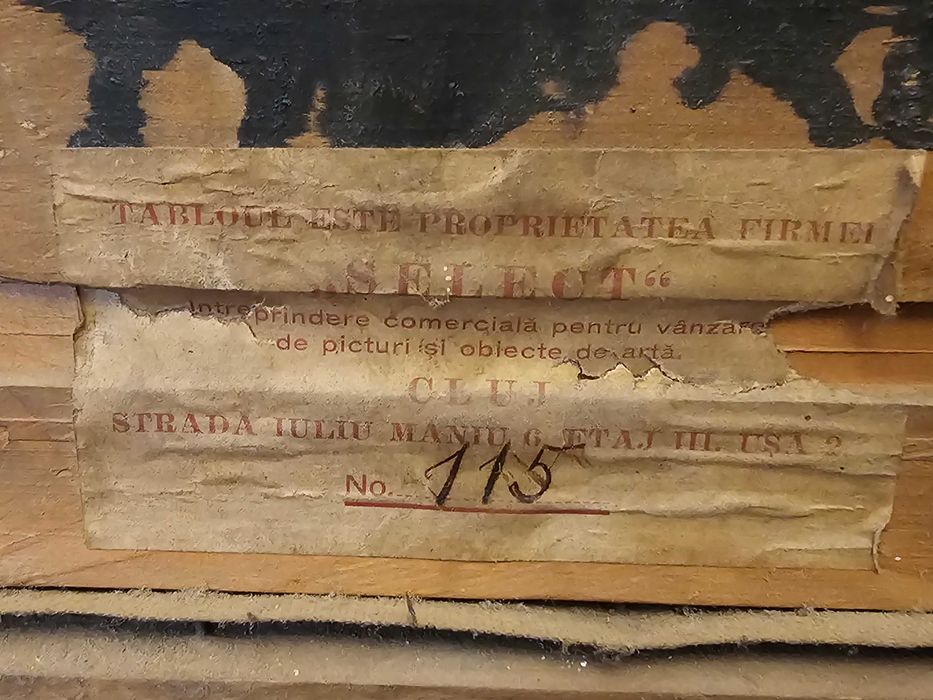 TABLOUL ESTE PROPRIETATEA FIRMEI
„SELECT“
Intreprindere comercială pentru vânzare
de picturi și obiecte de artă.
CLUJ
STRADA IULIU MANIU 6, ETAJ III. UȘA 2
No. 115